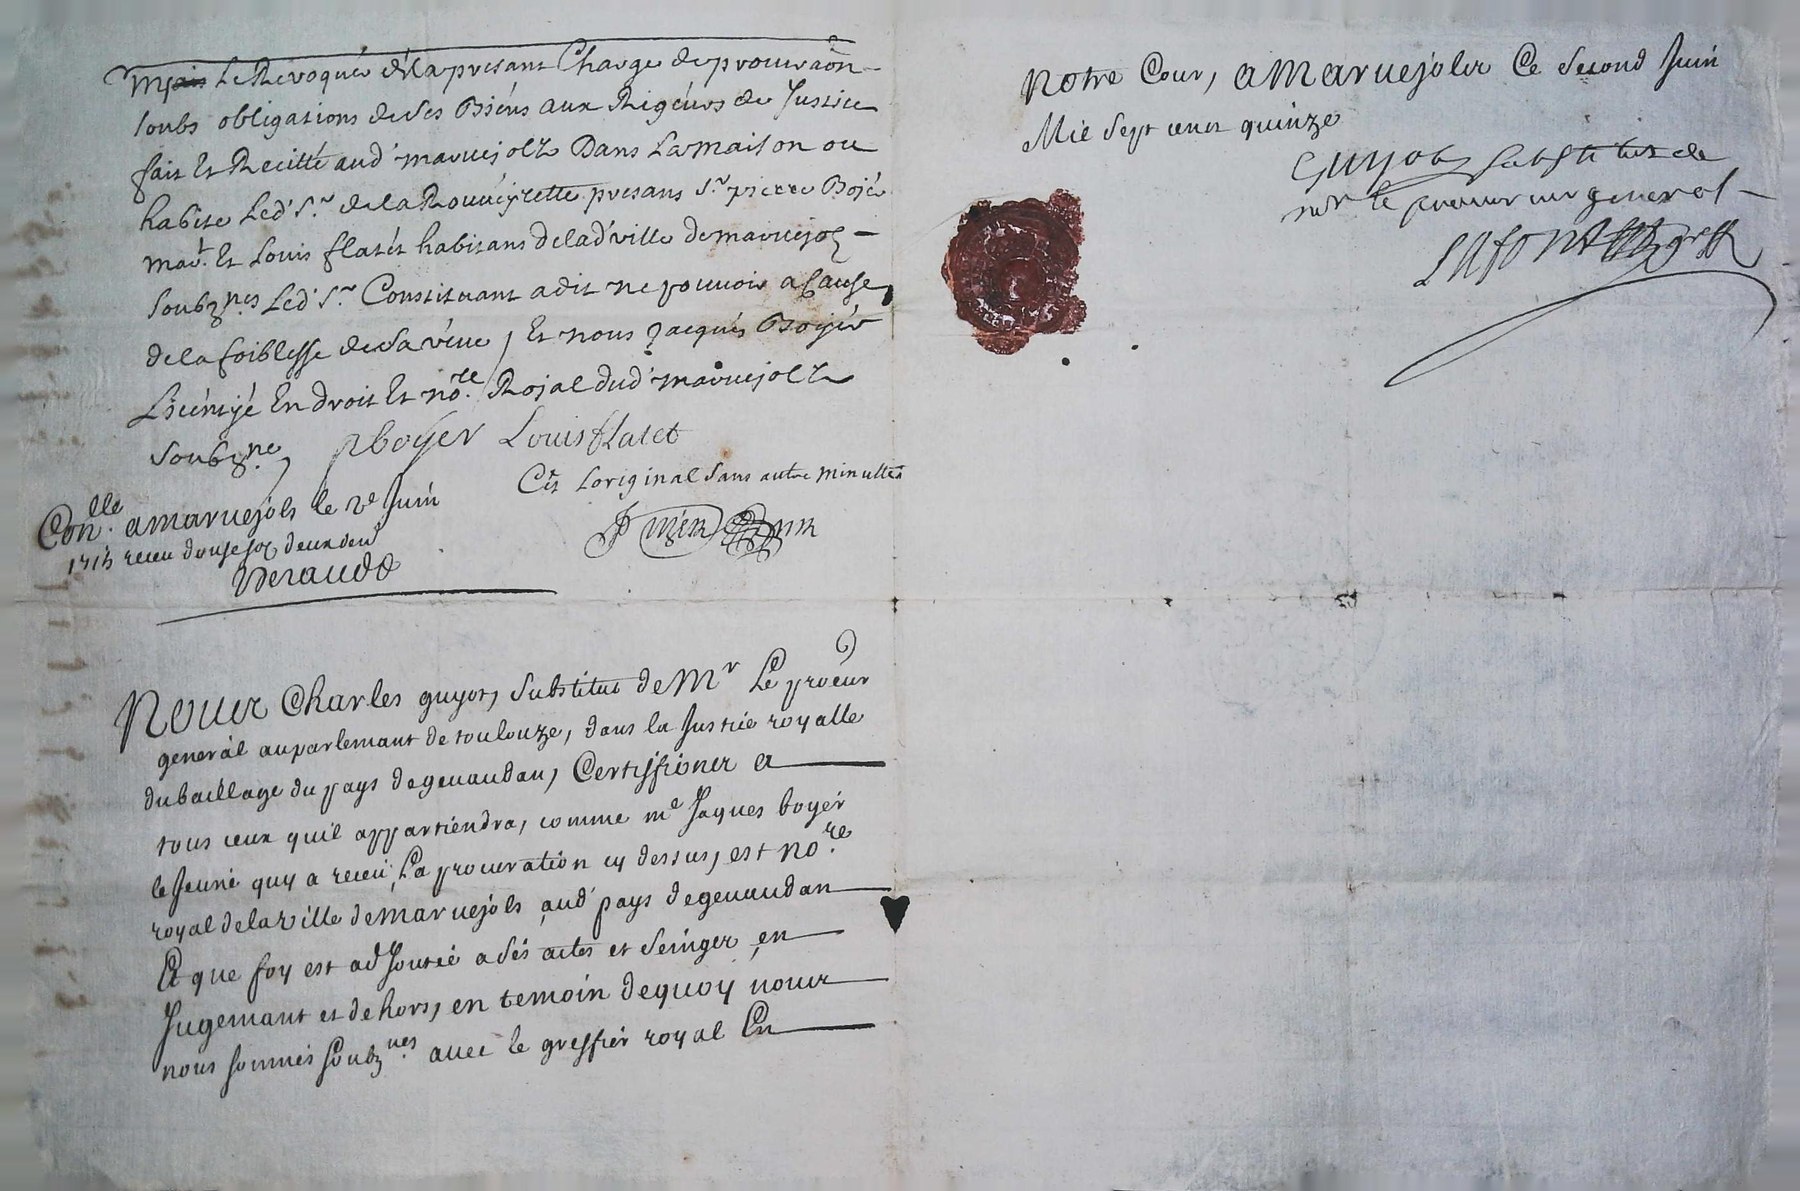 Le Revoquer de la presant Charge de procura̅on
soubs obligations de ses Biens aux Rigeurs de Justice
fait Et Recitté aud' marvejolz Dans La maison ou
habite Led' S.r de la Rouveyrette presans S.r pierre Boyé
mar.t Et Louis flatet habitans de lad' ville de marvejolz
soubz.nes Led' S.r Constituant a dit ne pouvoir a Cause
de la foiblesse de sa veue, Et nous Jacques Boyer
Licentyé En droit Et no.re Royal dud' marvejolz
soubz.né
pboyer Louis flatet
C'est Loriginal sans autre minutte
Con.lle a marvejols le 2e Juin
1715 receu douse solz deux den
Veraude
Nous Charles guyot, substitut de Mr Le procur
general au parlemant de toulouze, dans la Justice royalle
du baillage du pays de gevaudan, Certiffions a
tous ceux quil appartiendra, comme me Jaques boyer
le Jeune quy a receu La procuration cy dessus, est no.re
royal de la ville de marvejols aud' pays de gevaudan
Et que foy est adJoutée a ses actes et seings en
Jugemant et dehors, en temoin de quoy nous
nous sommes soubz.nes avec le greffier royal En
Notre Cour, a Marvejols Ce second Juin
Mil sept cens quinze
Guyot substitut de
mr le procureur general
Lafont greff